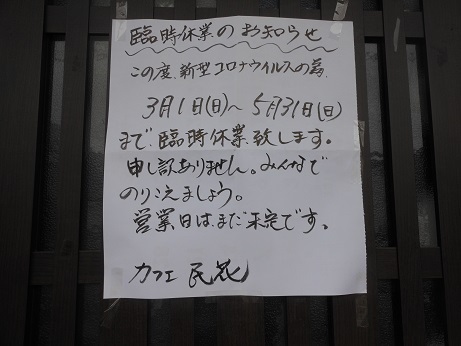 臨時休業のお知らせ
この度、新型コロナウイルスの為、
3月1日(日)～5月31日(日)
まで、臨時休業致します。
申し訳ありません。みんなで
のりこえましょう。
営業日は、まだ未定です。
カフェ 民花